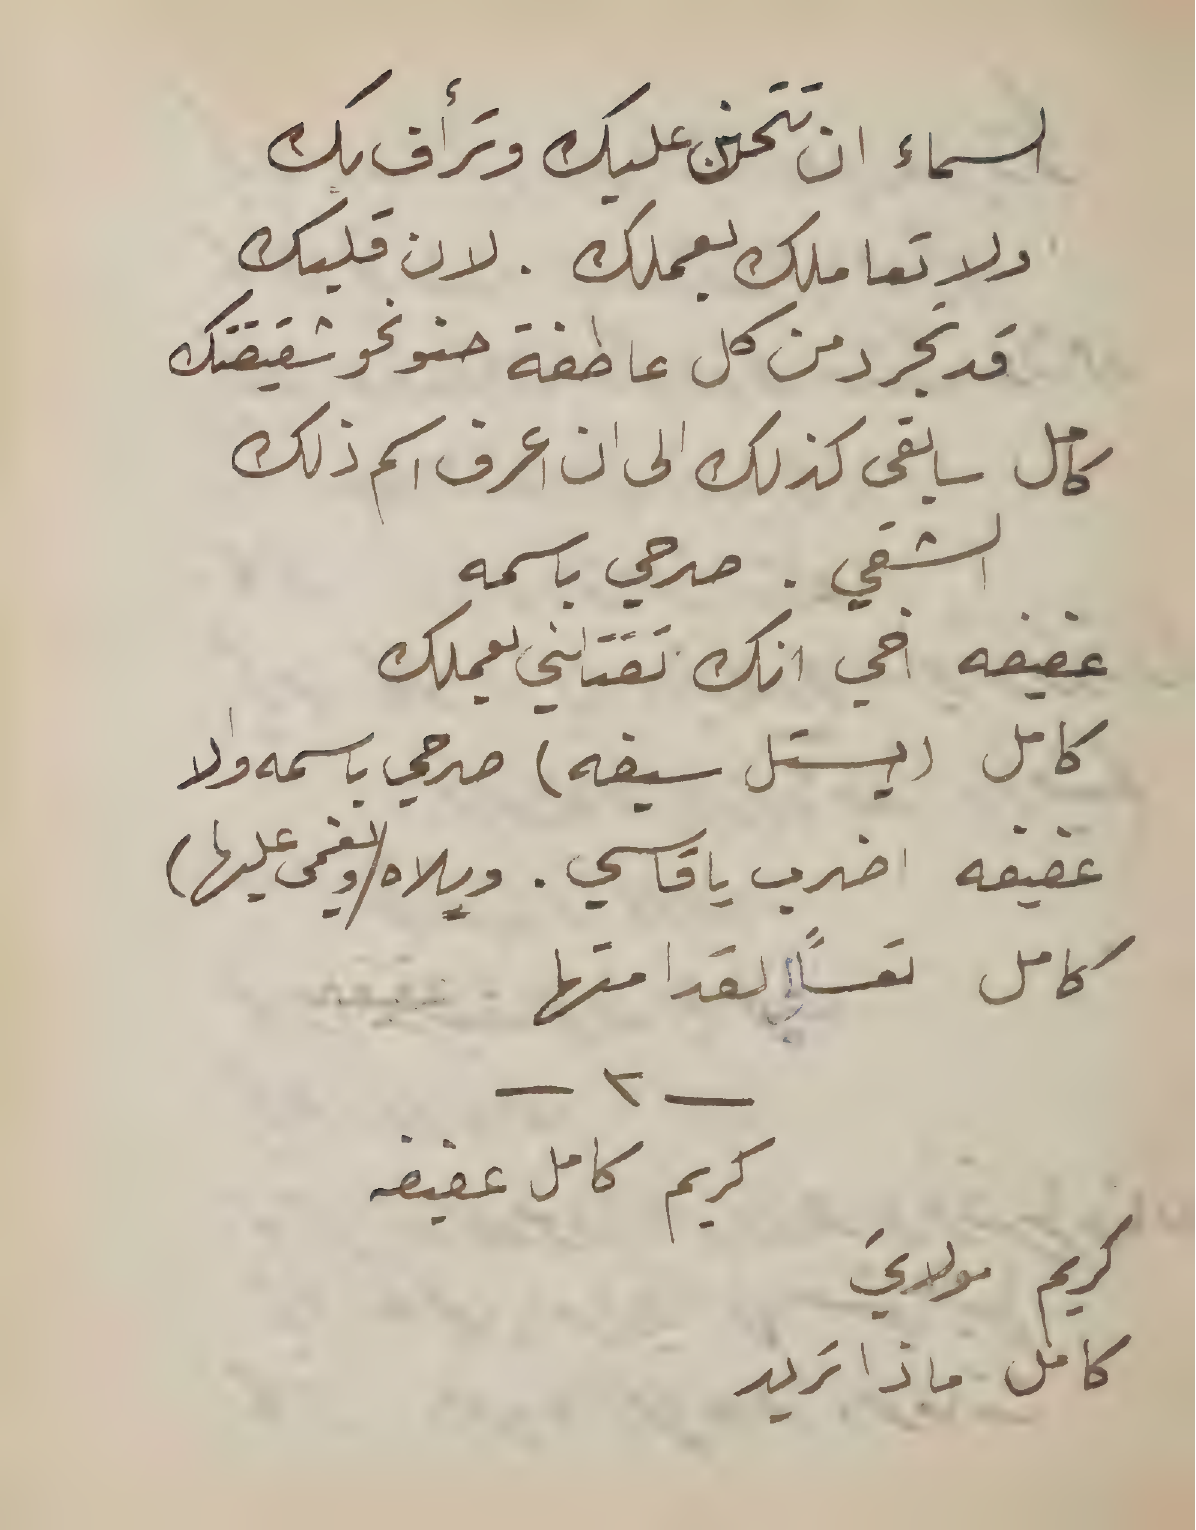 السماء ان تتحنن عليك وترأف بك
ولا تعاملك بعملك . لان قلبك
قد تجرد من كل عاطفة حنو نحو شقيقتك
كامل سابقى كذلك الى ان اعرف اسم ذلك
الشقي . صرحي باسمه
عفيفه اخي انك تقتلني بعملك
كامل (يستل سيفه) صرحي باسمه والا
عفيفه اضرب يا قاسي . ويلاه (ويغمى عليها)
كامل تعسًا لي لقد امتها
— ٣ —
كريم كامل عفيفه
كريم مولاي
كامل ماذا تريد